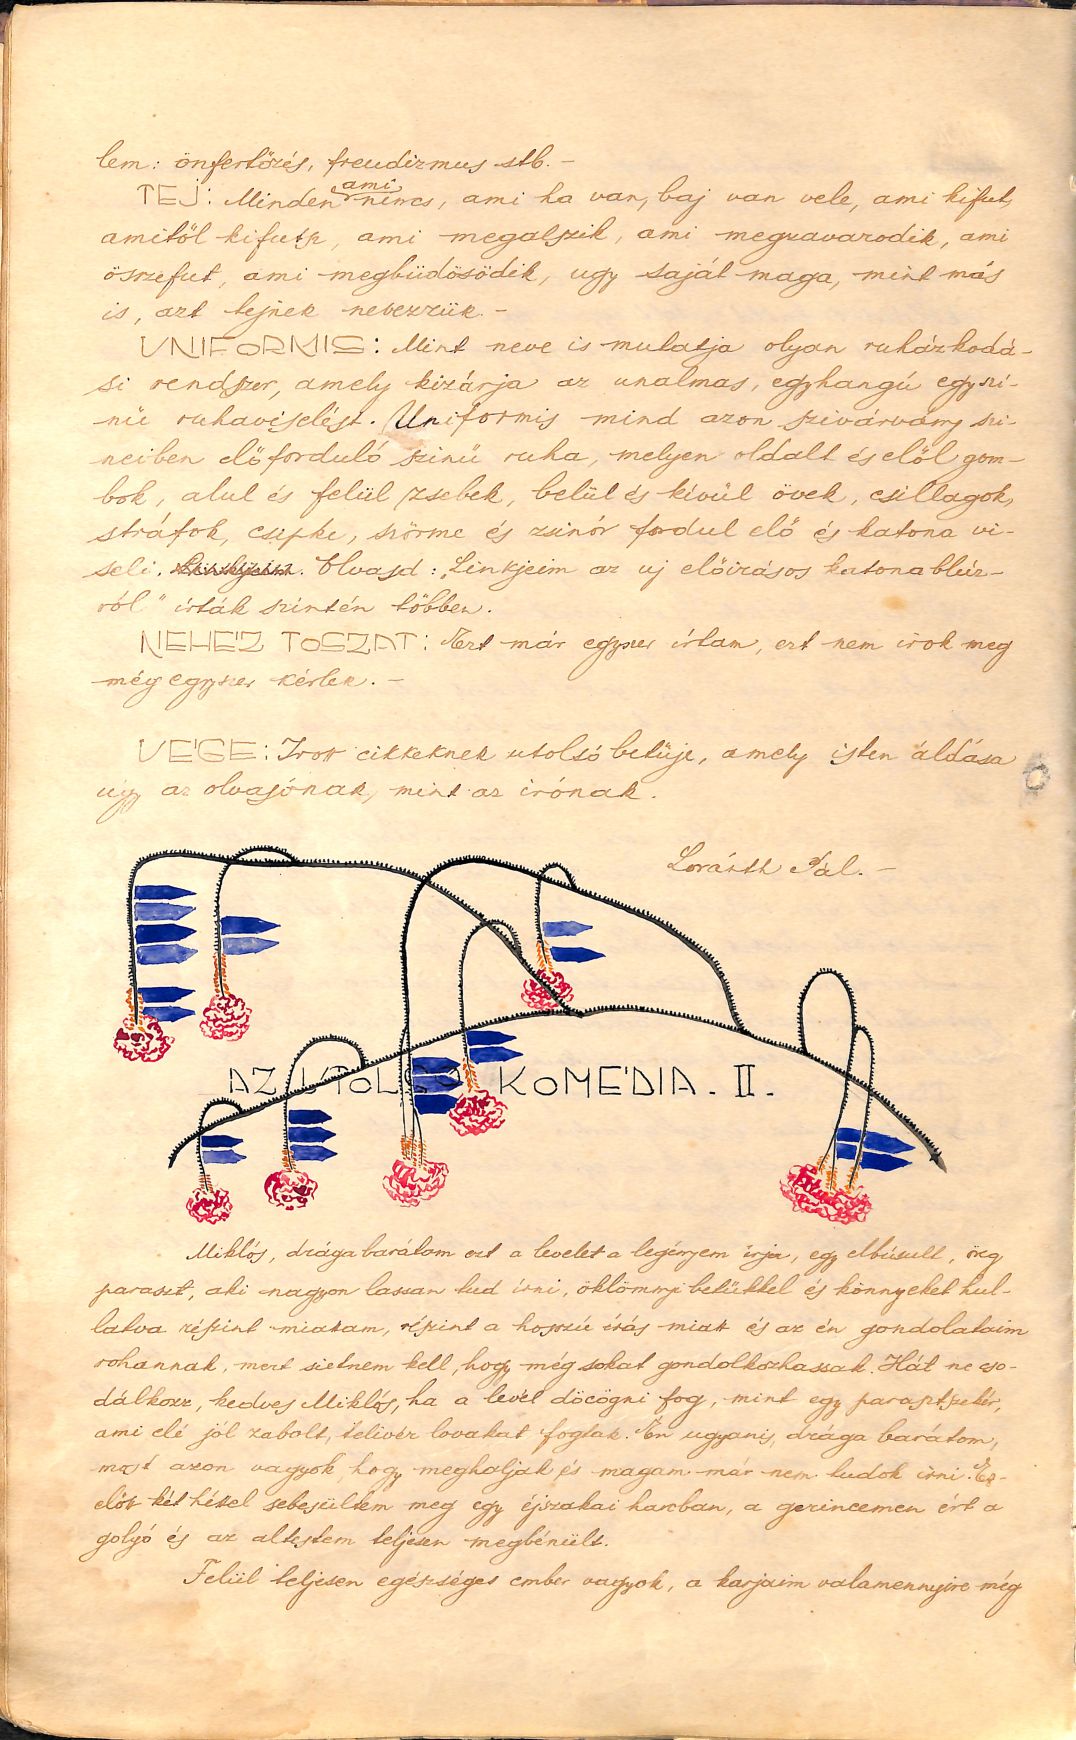 lem: önfertőzés, freudizmus stb. –
TEJ: Minden ami nincs, ami ha van, baj van vele, ami kifut,
amitől kifutsz, ami megalszik, ami megzavarodik, ami
összefut, ami megbüdösödik, ugy saját maga, mint más
is, azt tejnek nevezzük. –
UNIFORMIS: Mint neve is mutatja olyan ruházkodá-
si rendszer, amely kizárja az unalmas, egyhangú egyszí-
nü ruhaviselést. Uniformis mind azon szivárvány szi-
neiben előforduló szinü ruha, melyen oldalt és elől gom-
bok, alul és felül zsebek, belül és kívül övek, csillagok,
stráfok, csipke, szőrme és zsinór fordul elő és katona vi-
seli. Olvasd: „Linkjeim az uj előirásos katonablúz-
ról" írták szintén többen.
NEHÉZ TOSZAT: Ezt már egyszer írtam, ezt nem irok meg
még egyszer kérlek. –
VÉGE: Irott cikkeknek utolsó betüje, amely isten áldása
ugy az olvasónak, mint az irónak.
Loránth Pál. –
AZ UTOLSÓ KOMÉDIA. II.
Miklós, drága barátom ezt a levelet a legényem irja, egy elbúsult, öreg
paraszt, aki nagyon lassan tud írni, öklömnyi betükkel és könnyeket hul-
latva részint miattam, részint a hosszú írás miatt és az én gondolataim
rohannak, mert sietnem kell, hogy még sokat gondolkozhassak. Hát ne cso-
dálkozz, kedves Miklós, ha a levél döcögni fog, mint egy parasztszekér,
ami elé jól zabolt, telivér lovakat fogtak. Én ugyanis, drága barátom,
most azon vagyok, hogy meghaljak és magam már nem tudok irni. Ez-
előtt két héttel sebesültem meg egy éjszakai harcban, a gerincemen ért a
golyó és az altestem teljesen megbénúlt.
Felül teljesen egészséges ember vagyok, a karjaim valamennyire még